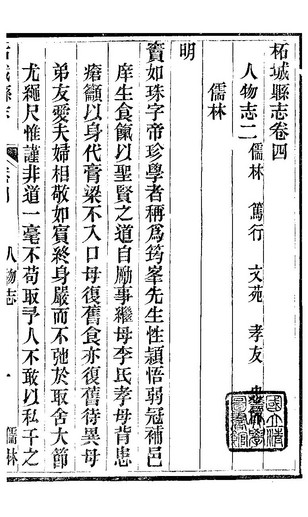 柘城縣志卷四
人物志二 儒林 篤行 文苑 孝友
儒林
明
竇如珠字帝珍學者稱爲筠峯先生性頴悟弱冠補邑
庠生食餼以聖賢之道自勵事繼母李氏孝母背患
瘡籲以身代膏粱不入口母復舊食亦復舊待異母
弟友愛夫婦相敬如賓終身嚴而不弛於取舍大節
尤繩尺惟謹非道一毫不苟取予人不敢以私干之
人物志 一 儒林